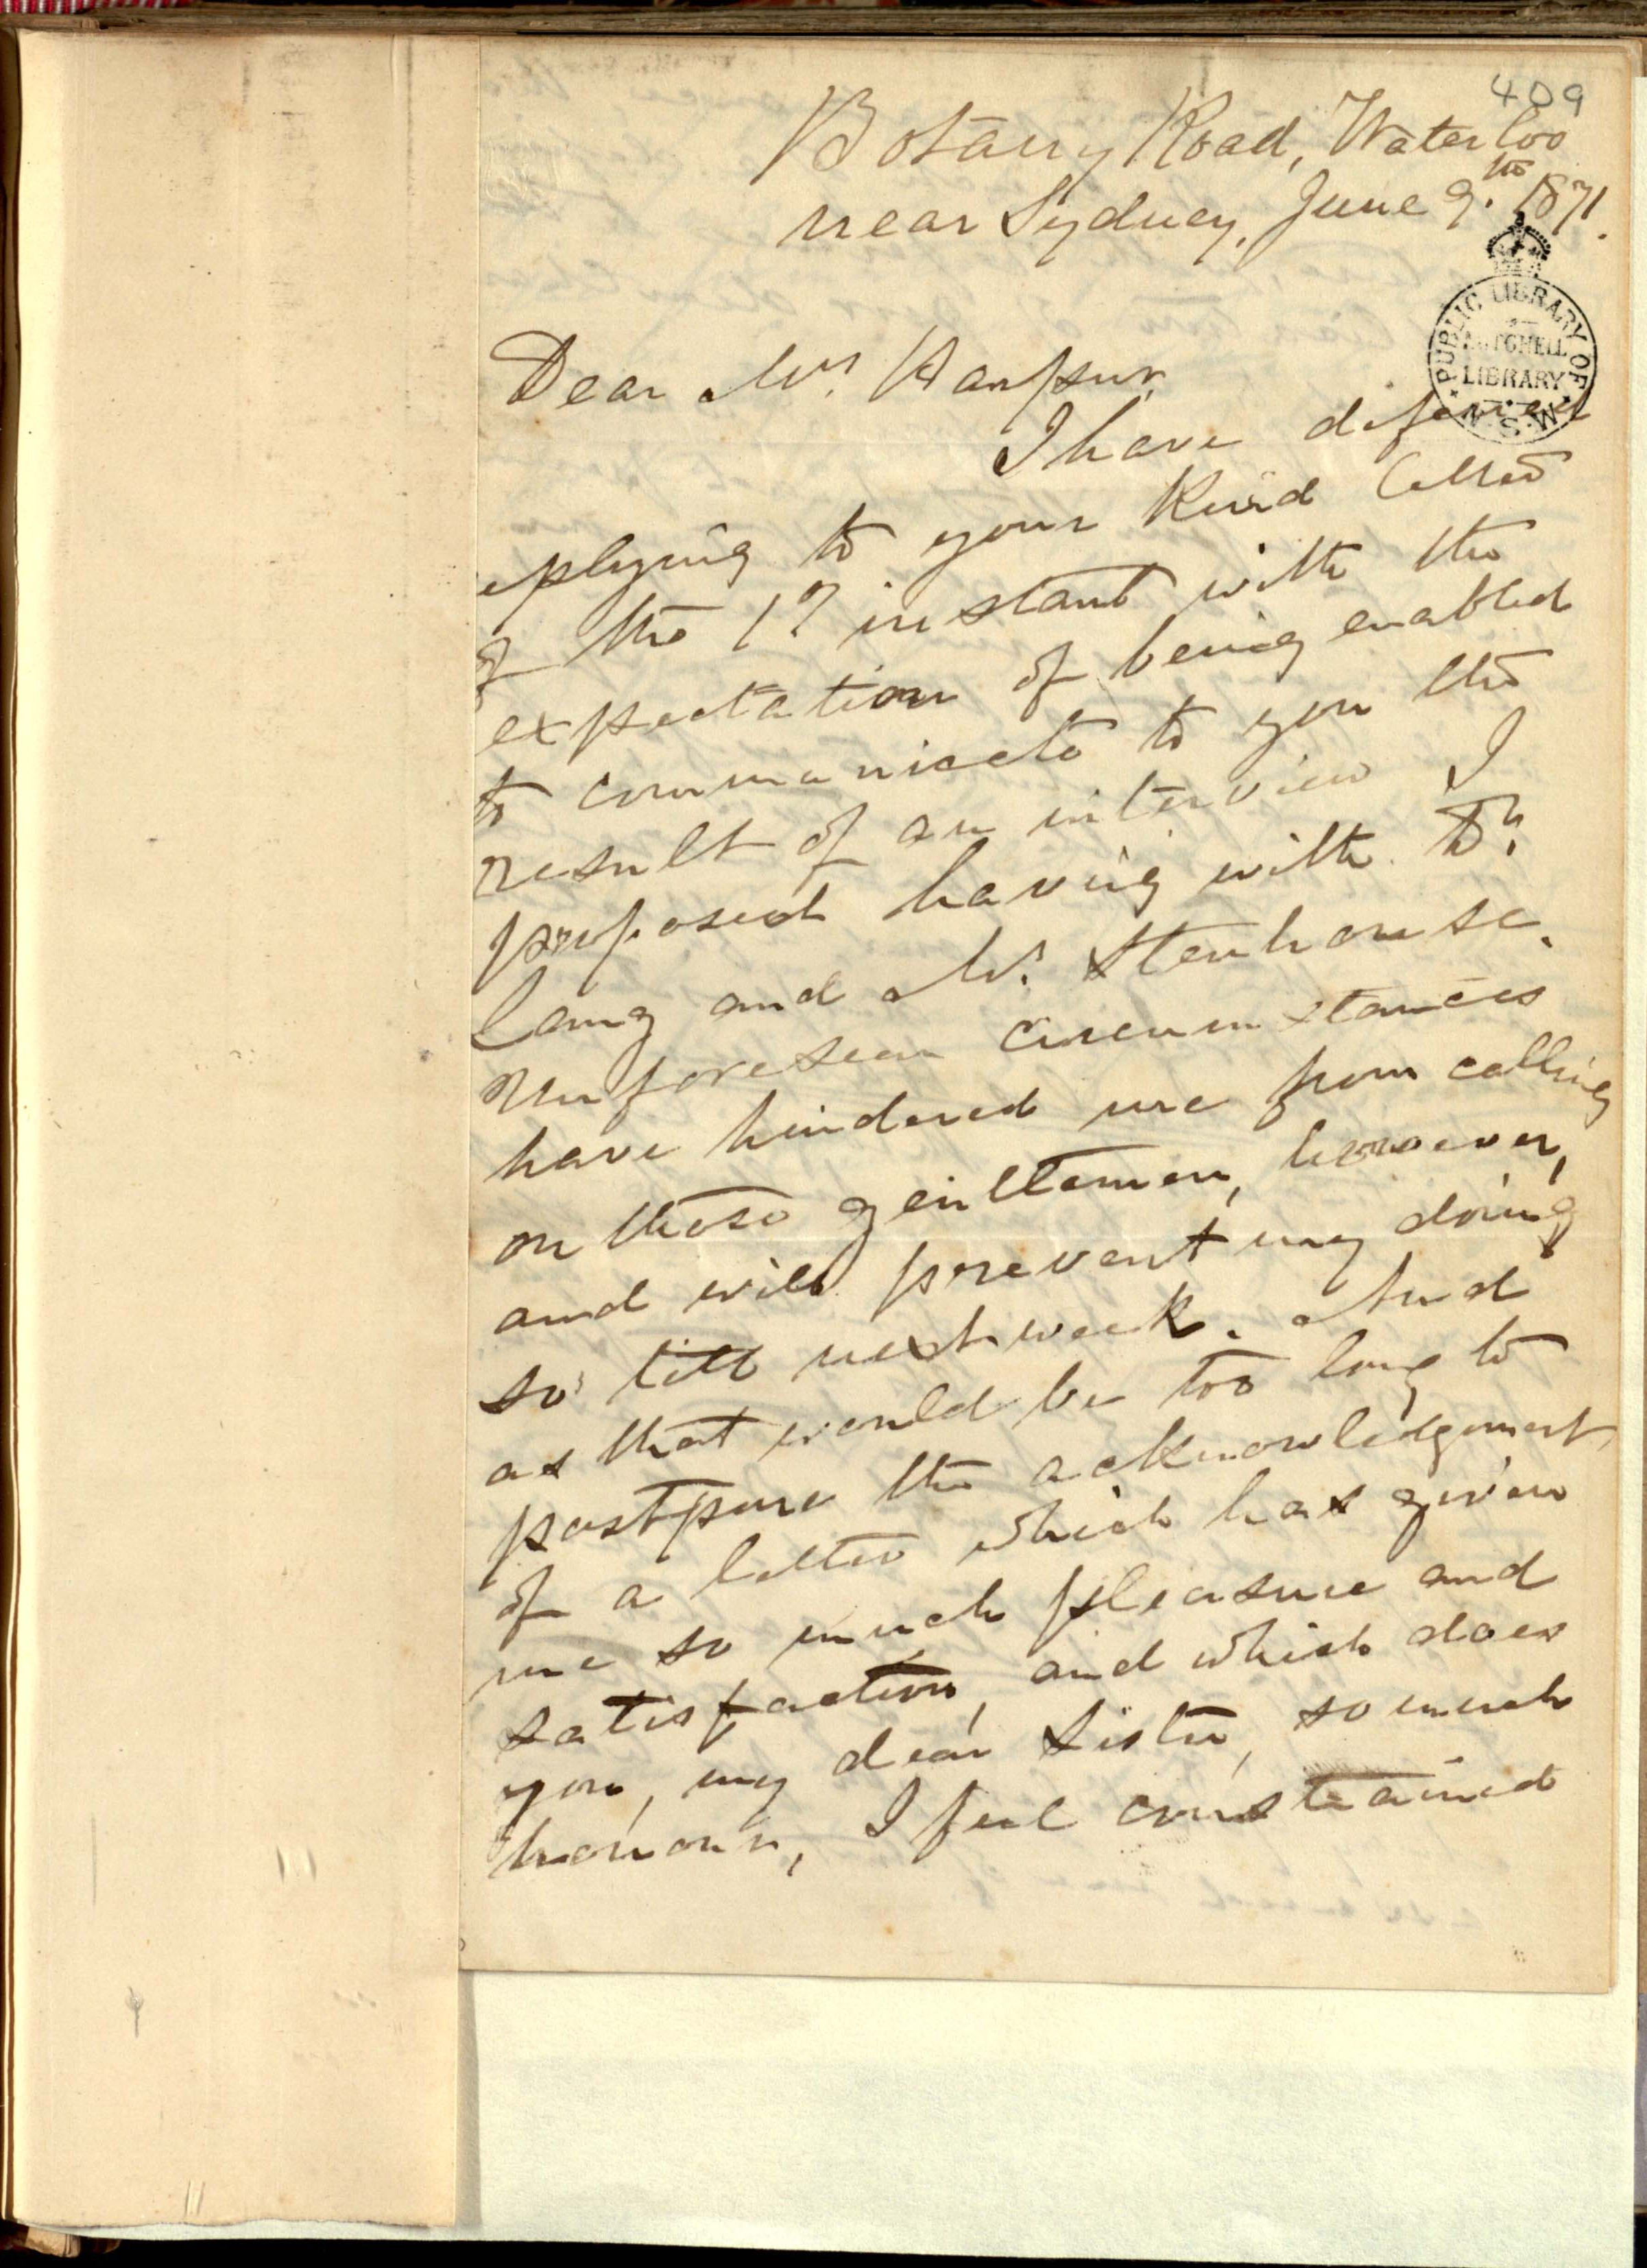 409
Botany Road, Waterloo
near Sydney, June 9.th 1871.
PUBLIC LIBRARY OF N.S.W.
MITCHELL
LIBRARY
Dear Mrs. Harpur,
I have deferred
eplying to your kind letter
of the 1st instant with the
expectation of being enabled
to communicate to you the
result of an interview I
proposed having with Dr.
Lang and Mr. Stenhouse.
Unforeseen circumstances
have hindered me from calling
on these gentlemen, however,
and will prevent my doing
so till next week. And
as that would be too long to
postpone the acknowledgement
of a letter which has given
me so much pleasure and
satisfaction, and which does
you, my dear Sister, so much
honour, I feel constrained